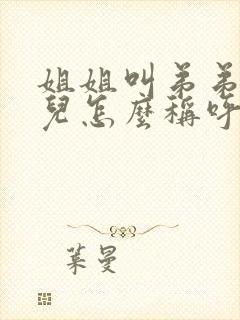 姐姐叫弟弟
兒怎麼稱呼
葉曼